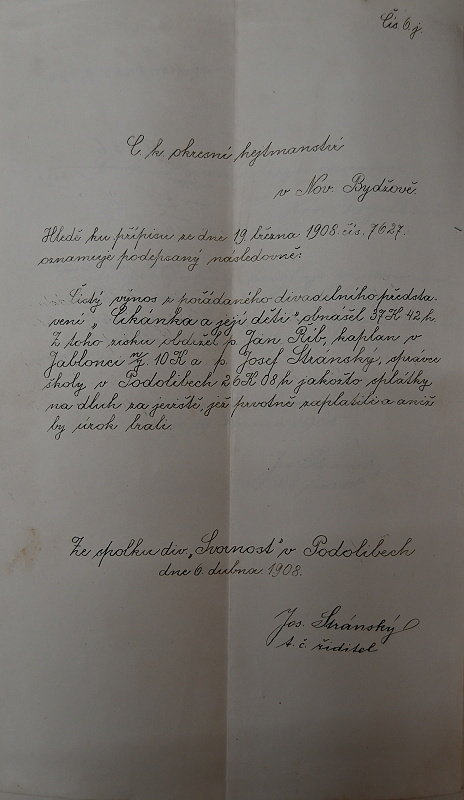 Čís. 6. j.
C. k. okresní hejtmanství
v Nov. Bydžově.
Hledě ku přípisu ze dne 19. března 1908 čís. 7627.
oznamuje podepsaný následovně:
Čistý výnos z pořádaného divadelního předsta-
vení „Cikánka a její děti" obnášel 37 K 42 h.
Z toho zisku obdržel p. Jan Rib, kaplan v
Jablonci n/J. 10 K a p. Josef Stránský, správce
školy v Podolibech 26 K 08 h jakožto splátky
na dluh za jeviště, jež prvotně zaplatili a aniž
by úrok brali.
Ze spolku div. „Svornost" v Podolibech
dne 6. dubna 1908.
Jos. Stránský
t. č. řiditel